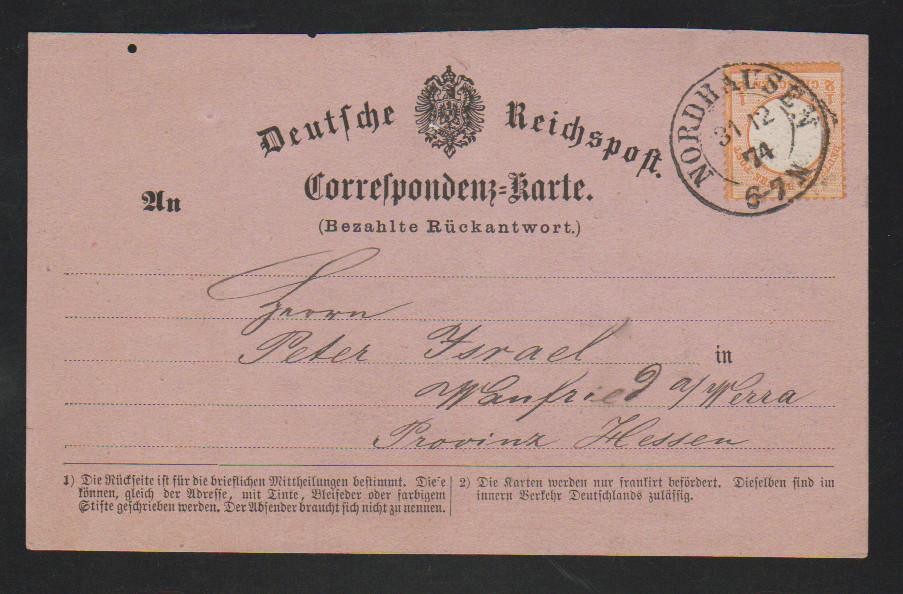 Deutsche Reichspost.
Correspondenz-Karte.
(Bezahlte Rückantwort.)
NORDHAUSEN
31 12
74
6-7 N
An
Herrn
Peter Israel in
Wanfried a/Werra
Provinz Hessen
1) Die Rückseite ist für die brieflichen Mittheilungen bestimmt. Die e
können, gleich der Adresse, mit Tinte, Bleifeder oder farbigem
Stifte geschrieben werden. Der Absender braucht sich nicht zu nennen.
2) Die Karten werden nur frankirt befördert. Dieselben sind im
innern Verkehr Deutschlands zulässig.